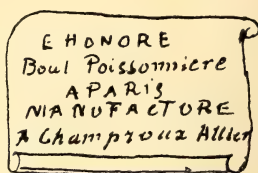 E HONORE
Boul Poissonniere
A PARIS
MANUFACTURE
A Champroux Allier